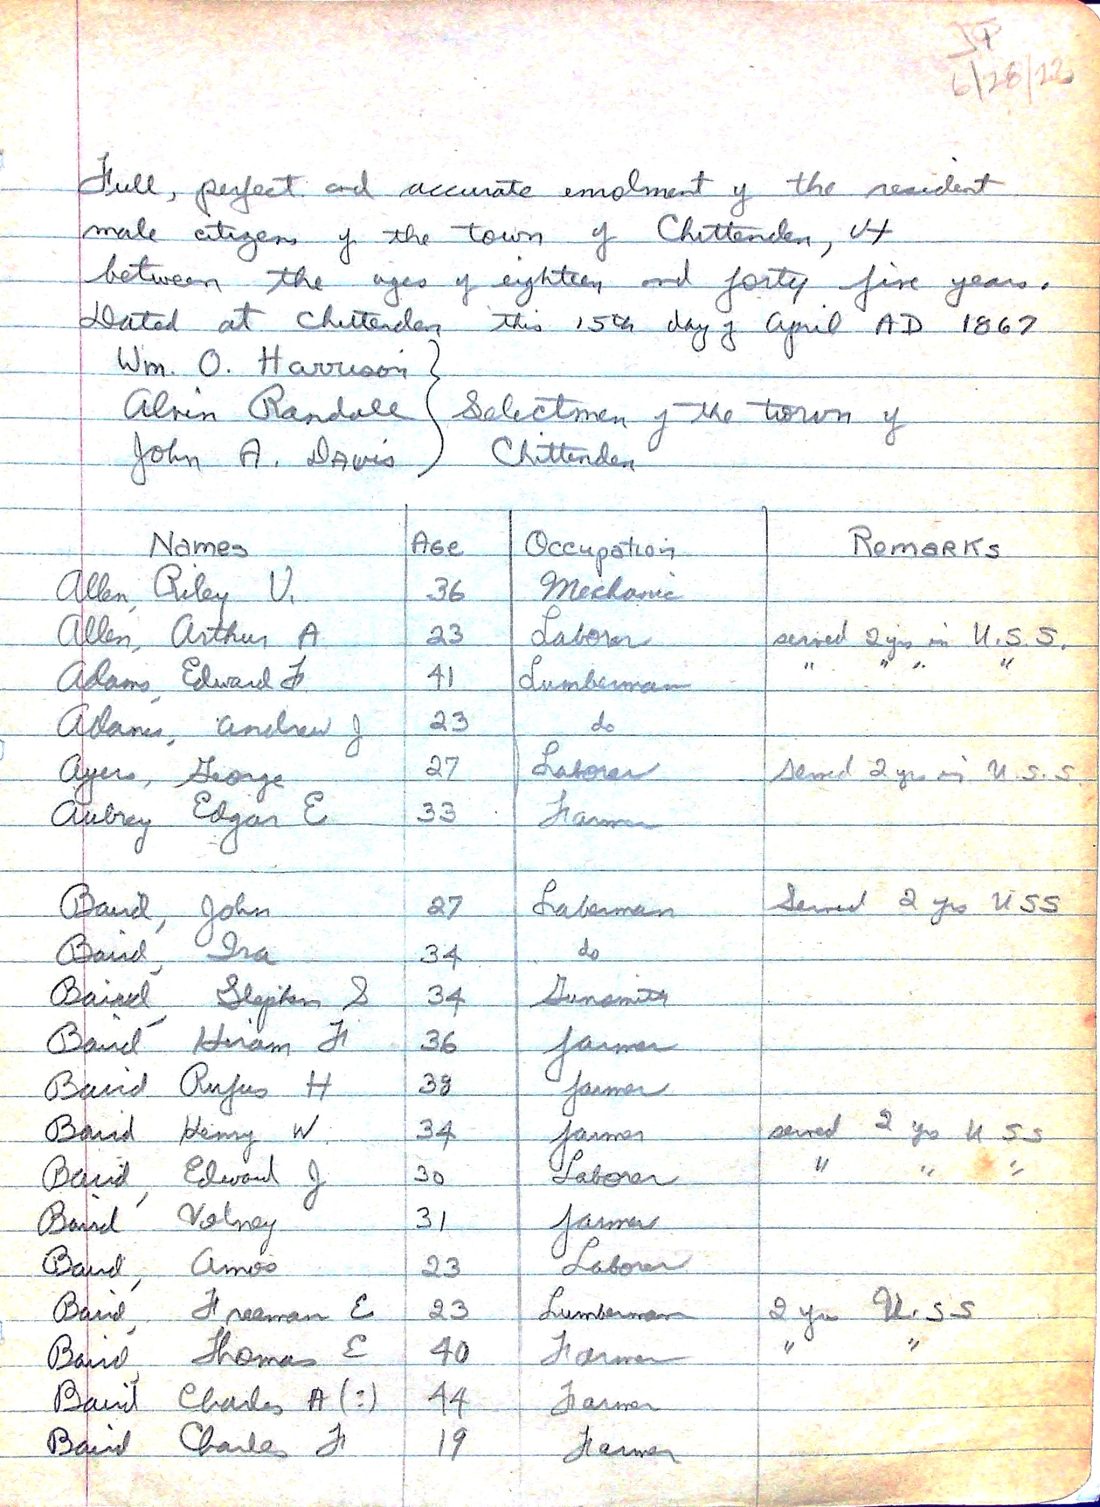 JP
6/28/22
Full, perfect and accurate enrolment of the resident
male citizens of the town of Chittenden, Vt
between the ages of eighteen and forty five years.
Dated at Chittenden this 15th day of April AD 1867
Wm. O. Harrison
Alvin Randall } Selectmen of the town of
John A. Davis Chittenden
Names Age Occupation Remarks
Allen, Riley V. 36 Mechanic
Allen, Arthur A 23 Laborer served 2 yrs in U.S.S.
Adams, Edward F 41 Lumberman " " " "
Adams, Andrew J 23 do
Ayers, George 27 Laborer Served 2 yrs in U.S.S.
Aubrey Edgar E 33 Farmer
Baird, John 27 Laberman Served 2 yrs USS
Baird, Ira 34 do
Baird, Stephen S 34 Gunsmith
Baird Hiram F 36 farmer
Baird Rufus H 38 farmer
Baird Henry W. 34 farmer served 2 yrs U SS
Baird, Edward J 30 Laborer " " "
Baird Volney 31 farmer
Baird, Amos 23 Laborer
Baird, Freeman E 23 Lumberman 2 yrs U.SS
Baird, Thomas E 40 Farmer " "
Baird Charles A (:) 44 Farmer
Baird Charles F 19 Farmer